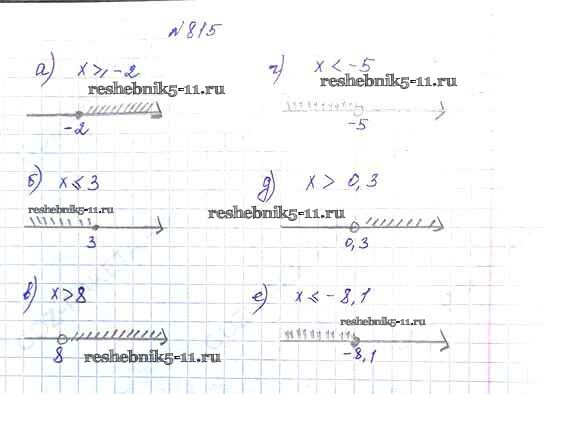 №815
а) x ≥ -2
reshebnik5-11.ru
-2
г) x < -5
reshebnik5-11.ru
-5
б) x ≤ 3
reshebnik5-11.ru
3
д) x > 0,3
reshebnik5-11.ru
0,3
в) x > 8
8
reshebnik5-11.ru
е) x ≤ -8,1
reshebnik5-11.ru
-8,1